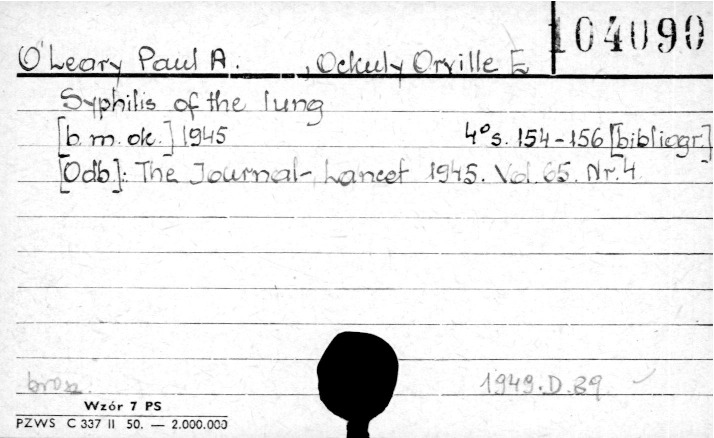 104090
O'Leary Paul A. , Ockuly Orville E.
Syphilis of the lung
[b.m.ok.] 1945 4°s. 154-156 [bibliogr.]
[Odb.]: The Journal-Lancet 1945. Vol. 65. Nr. 4.
brosz. 1949.D.89
Wzór 7 PS
PZWS C 337 II 50. — 2.000.000